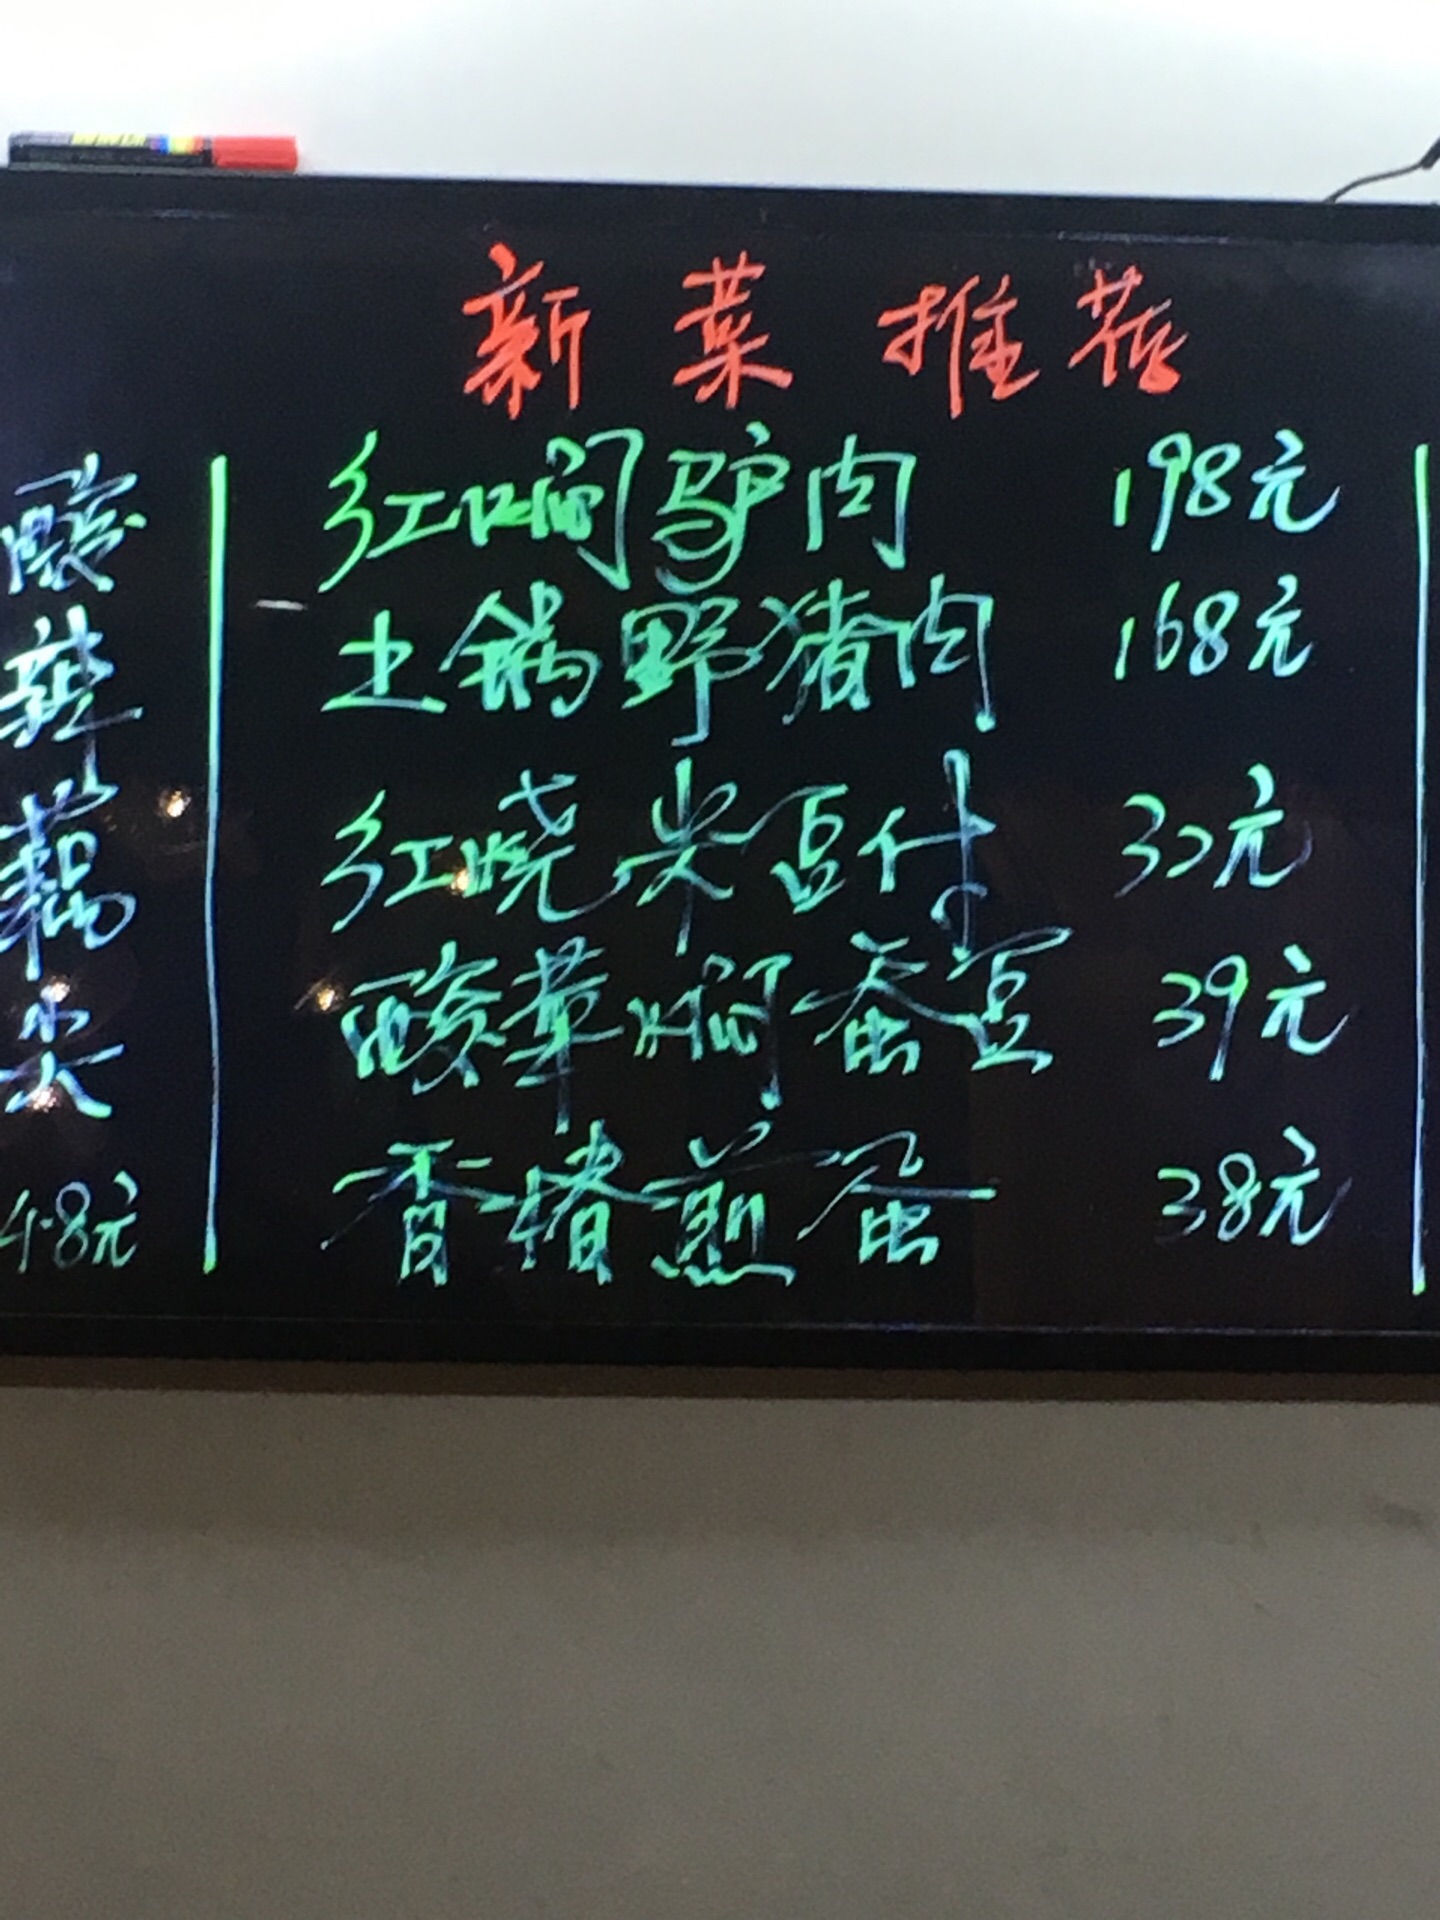 新菜推荐
红焖驴肉 198元
土锅野猪肉 168元
红烧米豆付 32元
酸草焖蚕豆 39元
香椿煎蛋 38元
酸
辣
藕
尖
48元